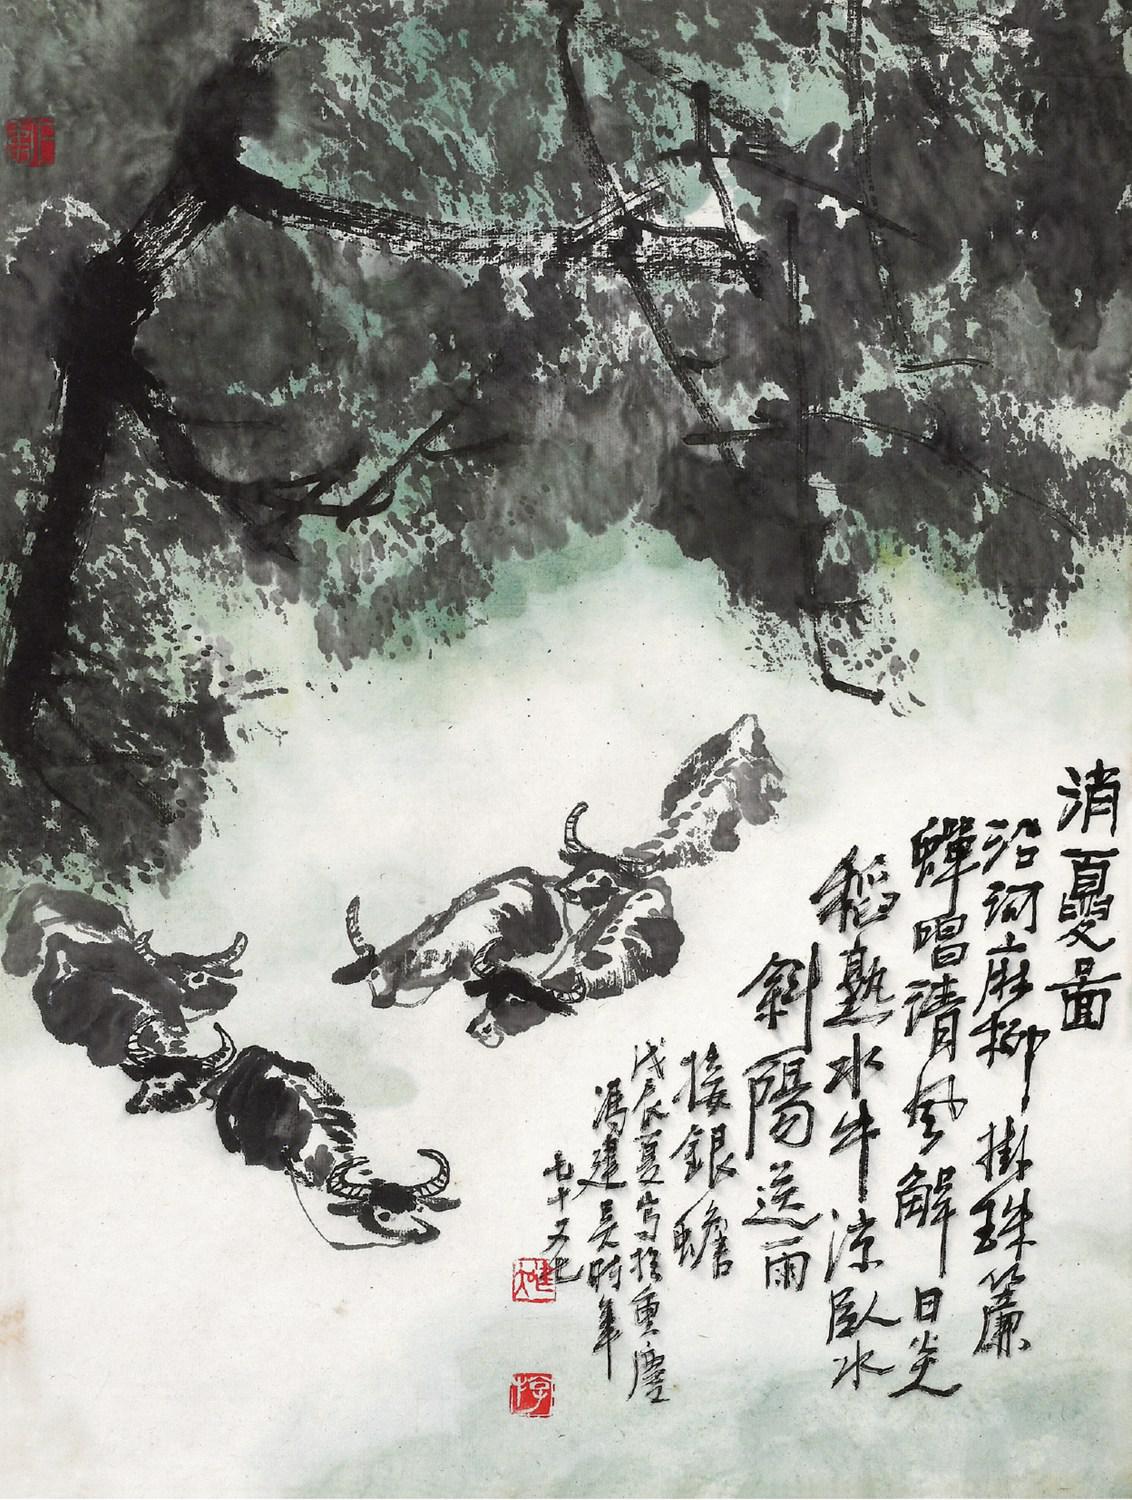 消夏图
沿河麻柳掛珠簾
蟬唱清風解日炎
稻熟水牛凉臥水
斜陽送雨
接銀蟾
戊辰夏寫於重慶
馮建吴時年
七十又七